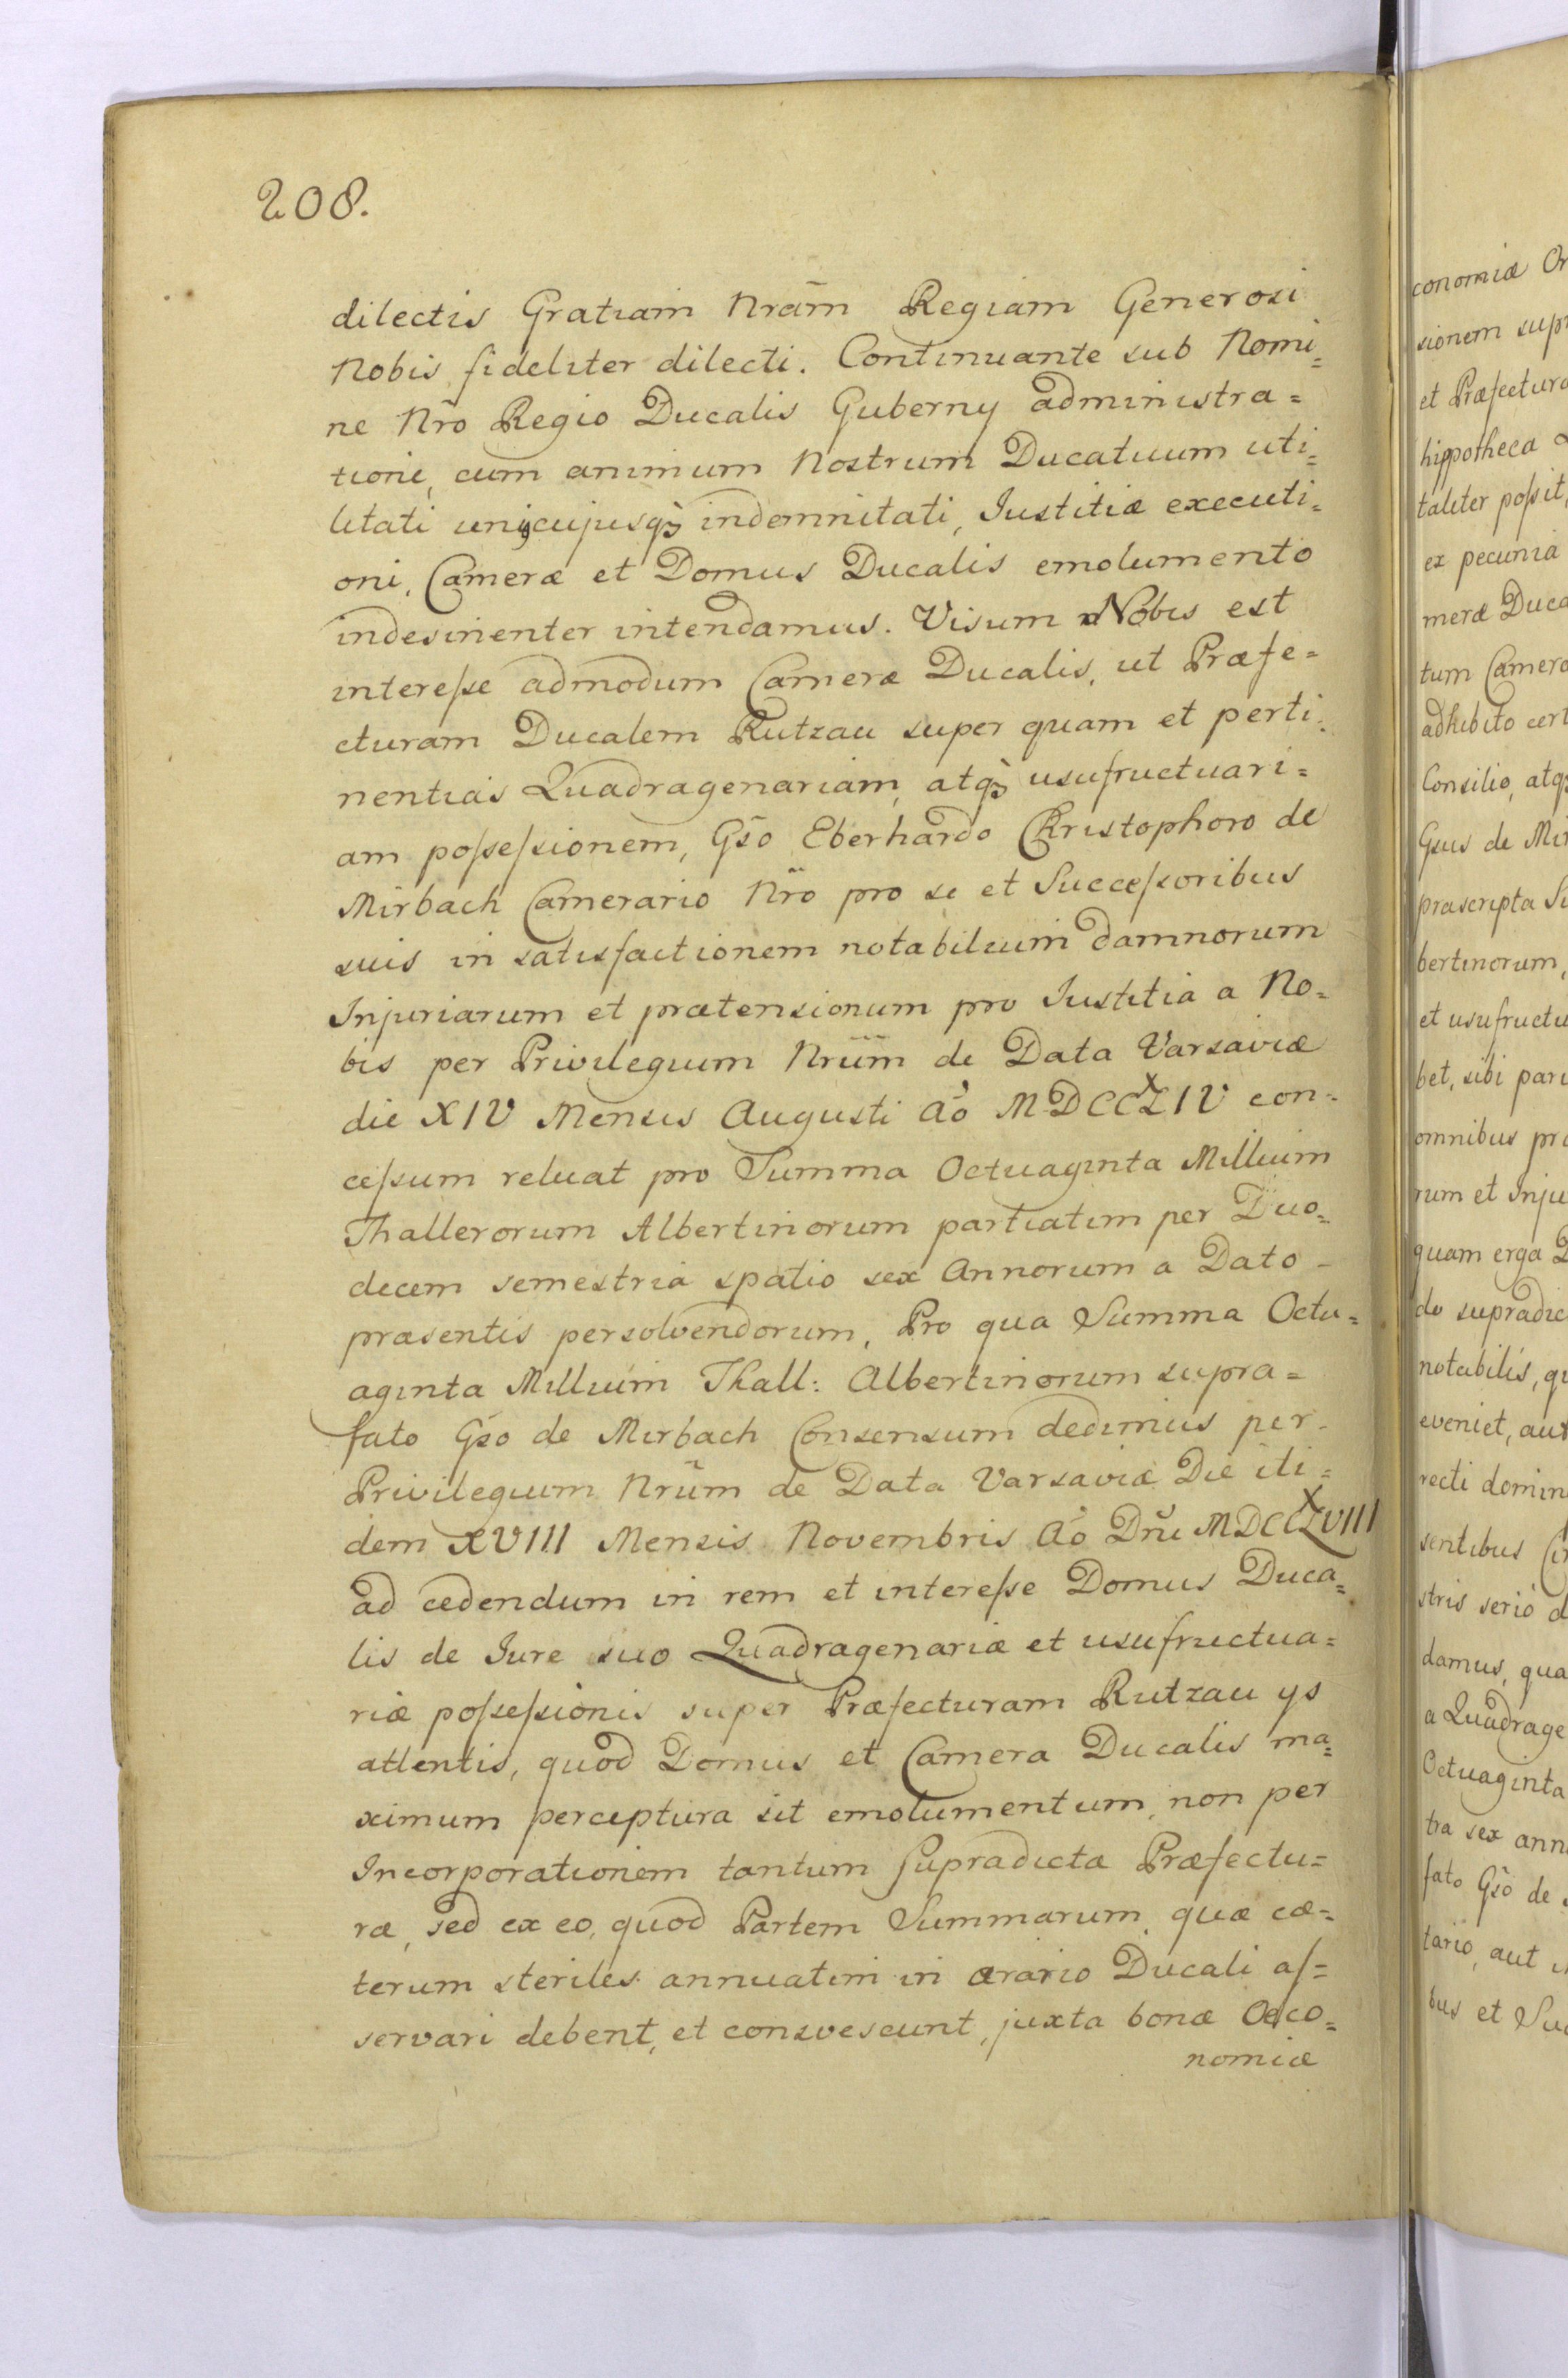 208.
dilectis Gratiam Nrām Regiam Generosi
Nobis fideliter dilecti. Continuante sub Nomi=
ne Nrō Regio Ducalis Guberny administra=
tione, cum animum Nostrum Ducatuum uti=
litati unicujusq́ꝫ indemnitati, Iustitiæ executi=
oni, Cameræ et Domus Ducalis emolumento
indesinenter intendamus. Visum Nobis est
interesse admodum Cameræ Ducalis, ut Præfe=
cturam Ducalem Rutzau super quam et perti=
nentias Quadragenariam, atq́ꝫ usufructuari=
am possessionem, Gsō Eberhardo Christophoro de
Mirbach Camerario Nrō pro se et Successoribus
suis in satisfactionem notabilium damnorum
Injuriarum et prætensionum pro Iustitia a No=
bis per Privilegium Nrūm de Data Varsaviæ
die XIV Mensis Augusti Aō MDCCXLIV con=
cessum reluat pro Summa Octuaginta Millium
Thallerorum Albertinorum partiatim per Duo=
decem semestria spatio sex Annorum a Dato
præsentis persolvendorum, Pro qua Summa Octu=
aginta Millium Thall: Albertinorum supra=
fato Gsō de Mirbach Consensum dedimus per
Privilegium Nrūm de Data Varsaviæ Die iti=
dem XVIII Mensis Novembris Aō Dnī MDCCXLVIII
ad cedendum in rem et interesse Domus Duca=
lis de Iure suo Quadragenariæ et usufructua=
riæ possessionis super Præfecturam Rutzau ys
attentis, quod Domus et Camera Ducalis ma=
ximum perceptura sit emolumentum, non per
Incorporationem tantum supradictæ Præfectu=
ræ, sed ex eo, quod Partem Summarum, quæ cæ=
terum steriles annuatim in ærario Ducali as=
servari debent, et consvescunt, juxta bonæ Oeco=
nomiæ
conomiæ
sionem
et Præfectura
hippotheca
taliter possit,
ex pecunia
meræ
tum
adhibito
Consilio, atqꝫ
Gsus de
præscripta
bertinorum,
et
bet, sibi
omnibus
rum et
quam erga
do
notabilis,
eveniet,
recti
sentibus
stris serio
damus,
a
Octuaginta
tra sex
fato Gsō de
tario, aut
bus et